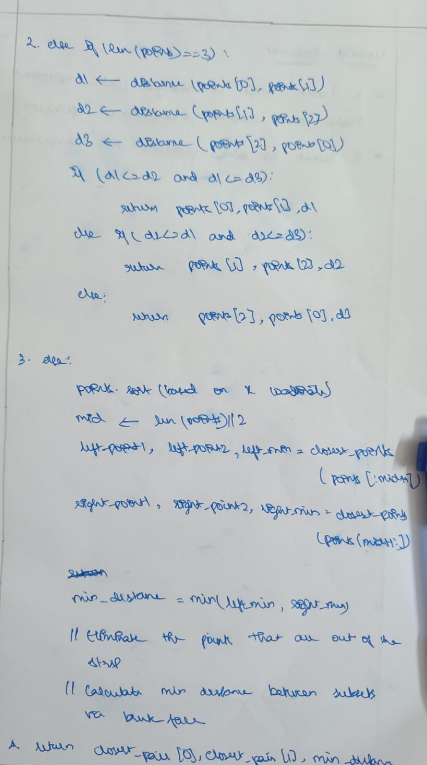 2. else if (len(points)==3):
d1 ← distance (points[0], points[1])
d2 ← distance (points[1], points[2])
d3 ← distance (points[2], points[0])
if (d1<=d2 and d1<=d3):
return points[0], points[1], d1
else if (d2<=d1 and d2<=d3):
return points[1], points[2], d2
else:
return points[2], points[0], d3
3. else:
points.sort (based on x coordinate)
mid ← len(points)//2
left-point1, left-point2, left-min = closest-points
(points [:mid+1])
right-point1, right-point2, right-min = closest-points
(points[mid+1:])
return
min_distance = min(left_min, right_min)
// Eliminate the points that are out of the
strip
// Calculate min distance between subsets
via brute force
4. return closest-pair [0], closest_pair [1], min_distance